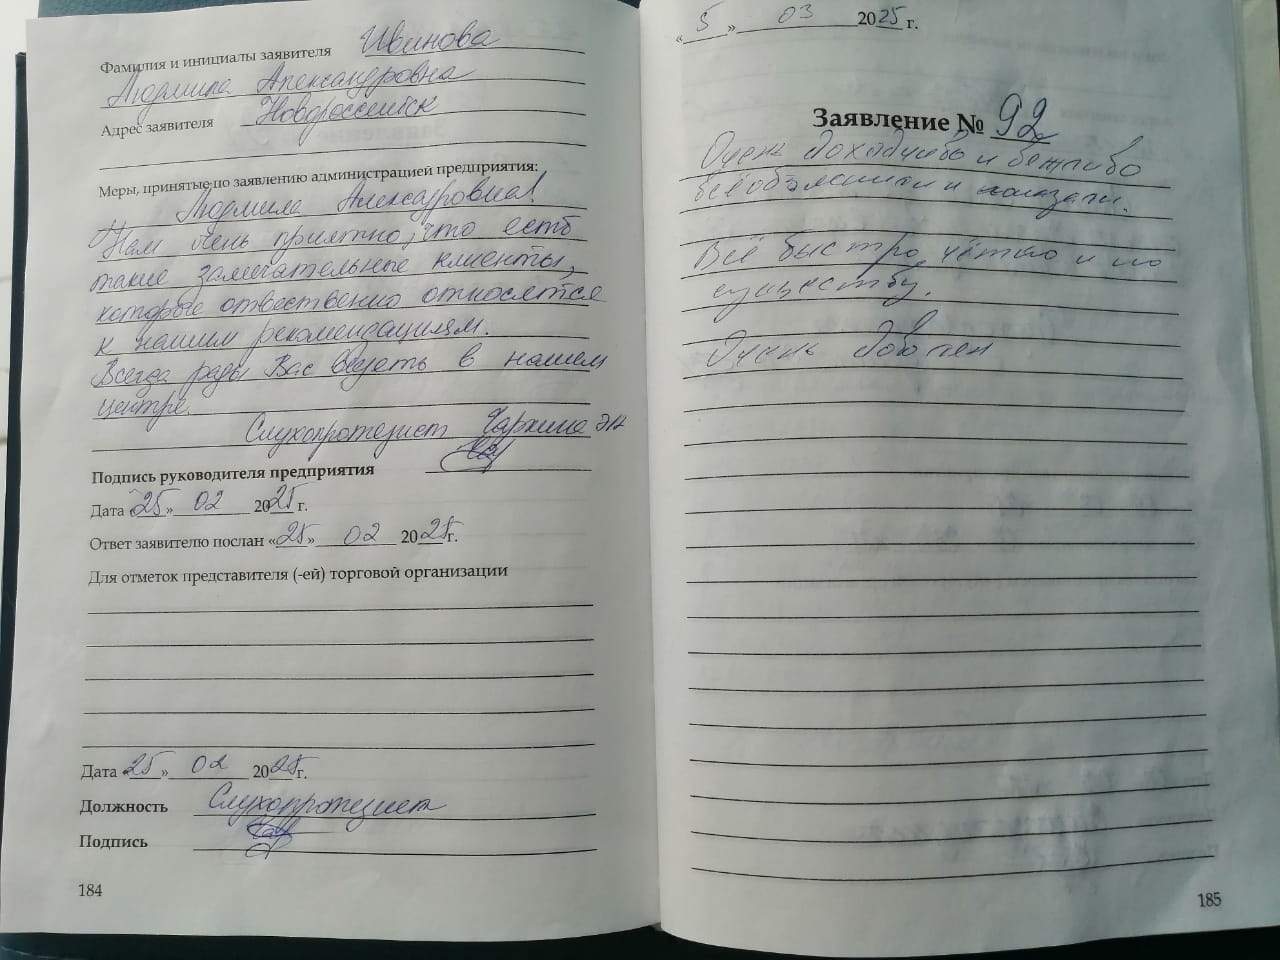 Фамилия и инициалы заявителя Иванова
Людмила Александровна
Адрес заявителя Новороссийск
Меры, принятые по заявлению администрацией предприятия:
Людмила Александровна!
Нам очень приятно, что есть
такие замечательные клиенты,
которые отвественно относятся
к нашим рекомендациям.
Всегда рады Вас видеть в нашем
центре.
Слухопротезист
Подпись руководителя предприятия
Дата «25» 02 2025 г.
Ответ заявителю послан «25» 02 2025 г.
Для отметок представителя (-ей) торговой организации
Дата «25» 02 2025 г.
Должность Слухопротезист
Подпись
184
«5» 03 2025 г.
Заявление № 92
Очень доходчиво и вежливо
всё объяснили и показали.
Всё быстро, чётко и по
существу.
Очень доволен
185